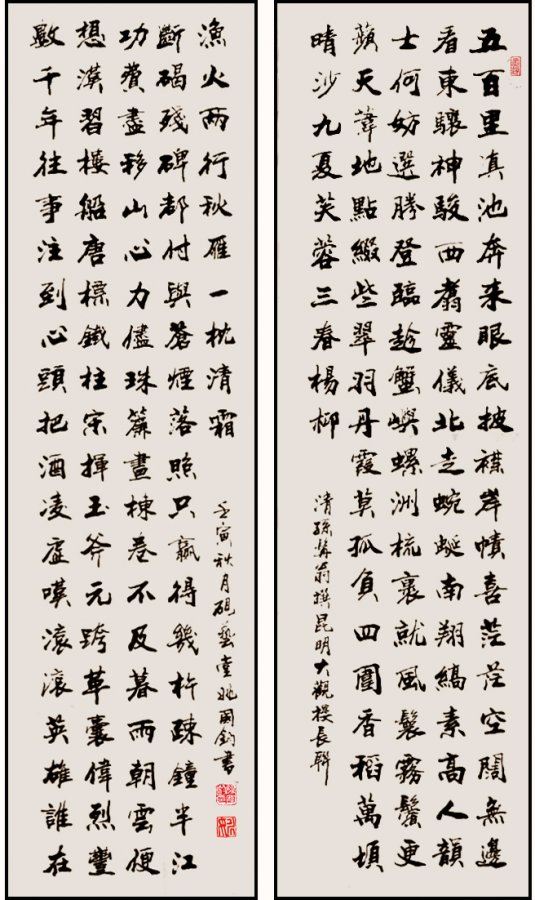 五百里滇池奔来眼底披襟岸幘喜茫茫空闊無邊
看東驤神駿西翥靈儀北走蜿蜒南翔縞素高人韻
士何妨選勝登臨趁蟹嶼螺洲梳裹就風鬟霧鬢更
蘋天葦地點綴些翠羽丹霞莫孤負四圍香稻萬頃
晴沙九夏芙蓉三春楊柳
清孫髯翁撰昆明大觀樓長聯
數千年往事注到心頭把酒凌虛嘆滾滾英雄誰在
想漢習樓船唐標鐵柱宋揮玉斧元跨革囊偉烈豐
功費盡移山心力儘珠簾畫棟卷不及暮雨朝雲便
斷碣殘碑都付與蒼煙落照只贏得幾杵疎鐘半江
漁火兩行秋雁一枕清霜
壬寅秋月硯藝堂姚國鈞書